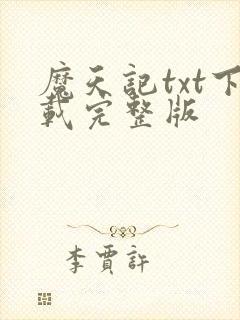 魔天記txt下
載完整版
李賈許